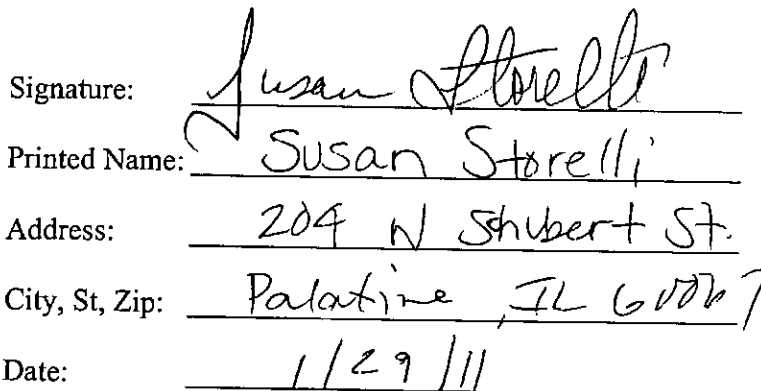 Signature: Susan Storelli
Printed Name: Susan Storelli
Address: 204 N Shubert St.
City, St, Zip: Palatine, IL 60067
Date: 1/29/11